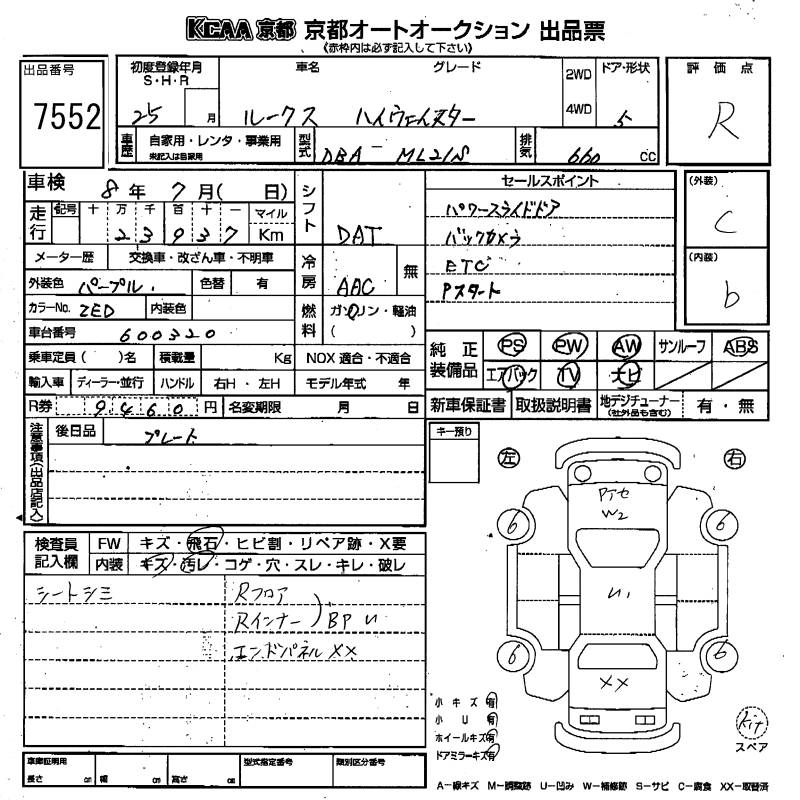 KCAA 京都 京都オートオークション 出品票
(赤枠内は必ず記入して下さい)
出品番号
7552
初度登録年月
S・H・R
25 月
車名 グレード
ルークス ハイウェイスター
2WD
4WD
ドア・形状
5
評価点
R
車歴
自家用・レンタ・事業用
未記入は自家用
型式
DBA－ML21S
排気
660 CC
車検 8年 7月( 日)
走行
記号 十 万 千 百 十 一 マイル
2 3 9 3 7 Km
シフト
DAT
セールスポイント
パワースライドドア
バックカメラ
ETC
Pスタート
(外装)
C
(内装)
b
メーター歴 交換車・改ざん車・不明車
外装色 パープル 色替 有
冷房
AAC 無
カラーNo. ZED 内装色
燃料
ガソリン・軽油
( )
車台番号 600320
乗車定員( )名 積載量 Kg NOX 適合・不適合
輸入車 ディーラー・並行 ハンドル 右H・左H モデル年式 年
R券 9460円 名変期限 月 日
純正装備品
PS PW AW サンルーフ ABS
エアバック TV ナビ
新車保証書 取扱説明書 地デジチューナー 有・無
(社外品も含む)
注意事項(出品店記入)
後日品 プレート
キー預り
左 右
PTセ
W2
6 6
U1
6 6
XX
検査員記入欄
FW キズ・飛石・ヒビ割・リペア跡・X要
内装 キズ・汚レ・コゲ・穴・スレ・キレ・破レ
シートシミ
Rフロア
Rインナー BP U
エンドパネル XX
小キズ有
小U有
ホイールキズ有
ドアミラーキズ有
kit
スペア
車庫証明用
長さ cm 幅 cm 高さ cm
型式指定番号 類別区分番号
A－線キズ M－調整跡 U－凹み W－補修跡 S－サビ C－腐食 XX－取替済